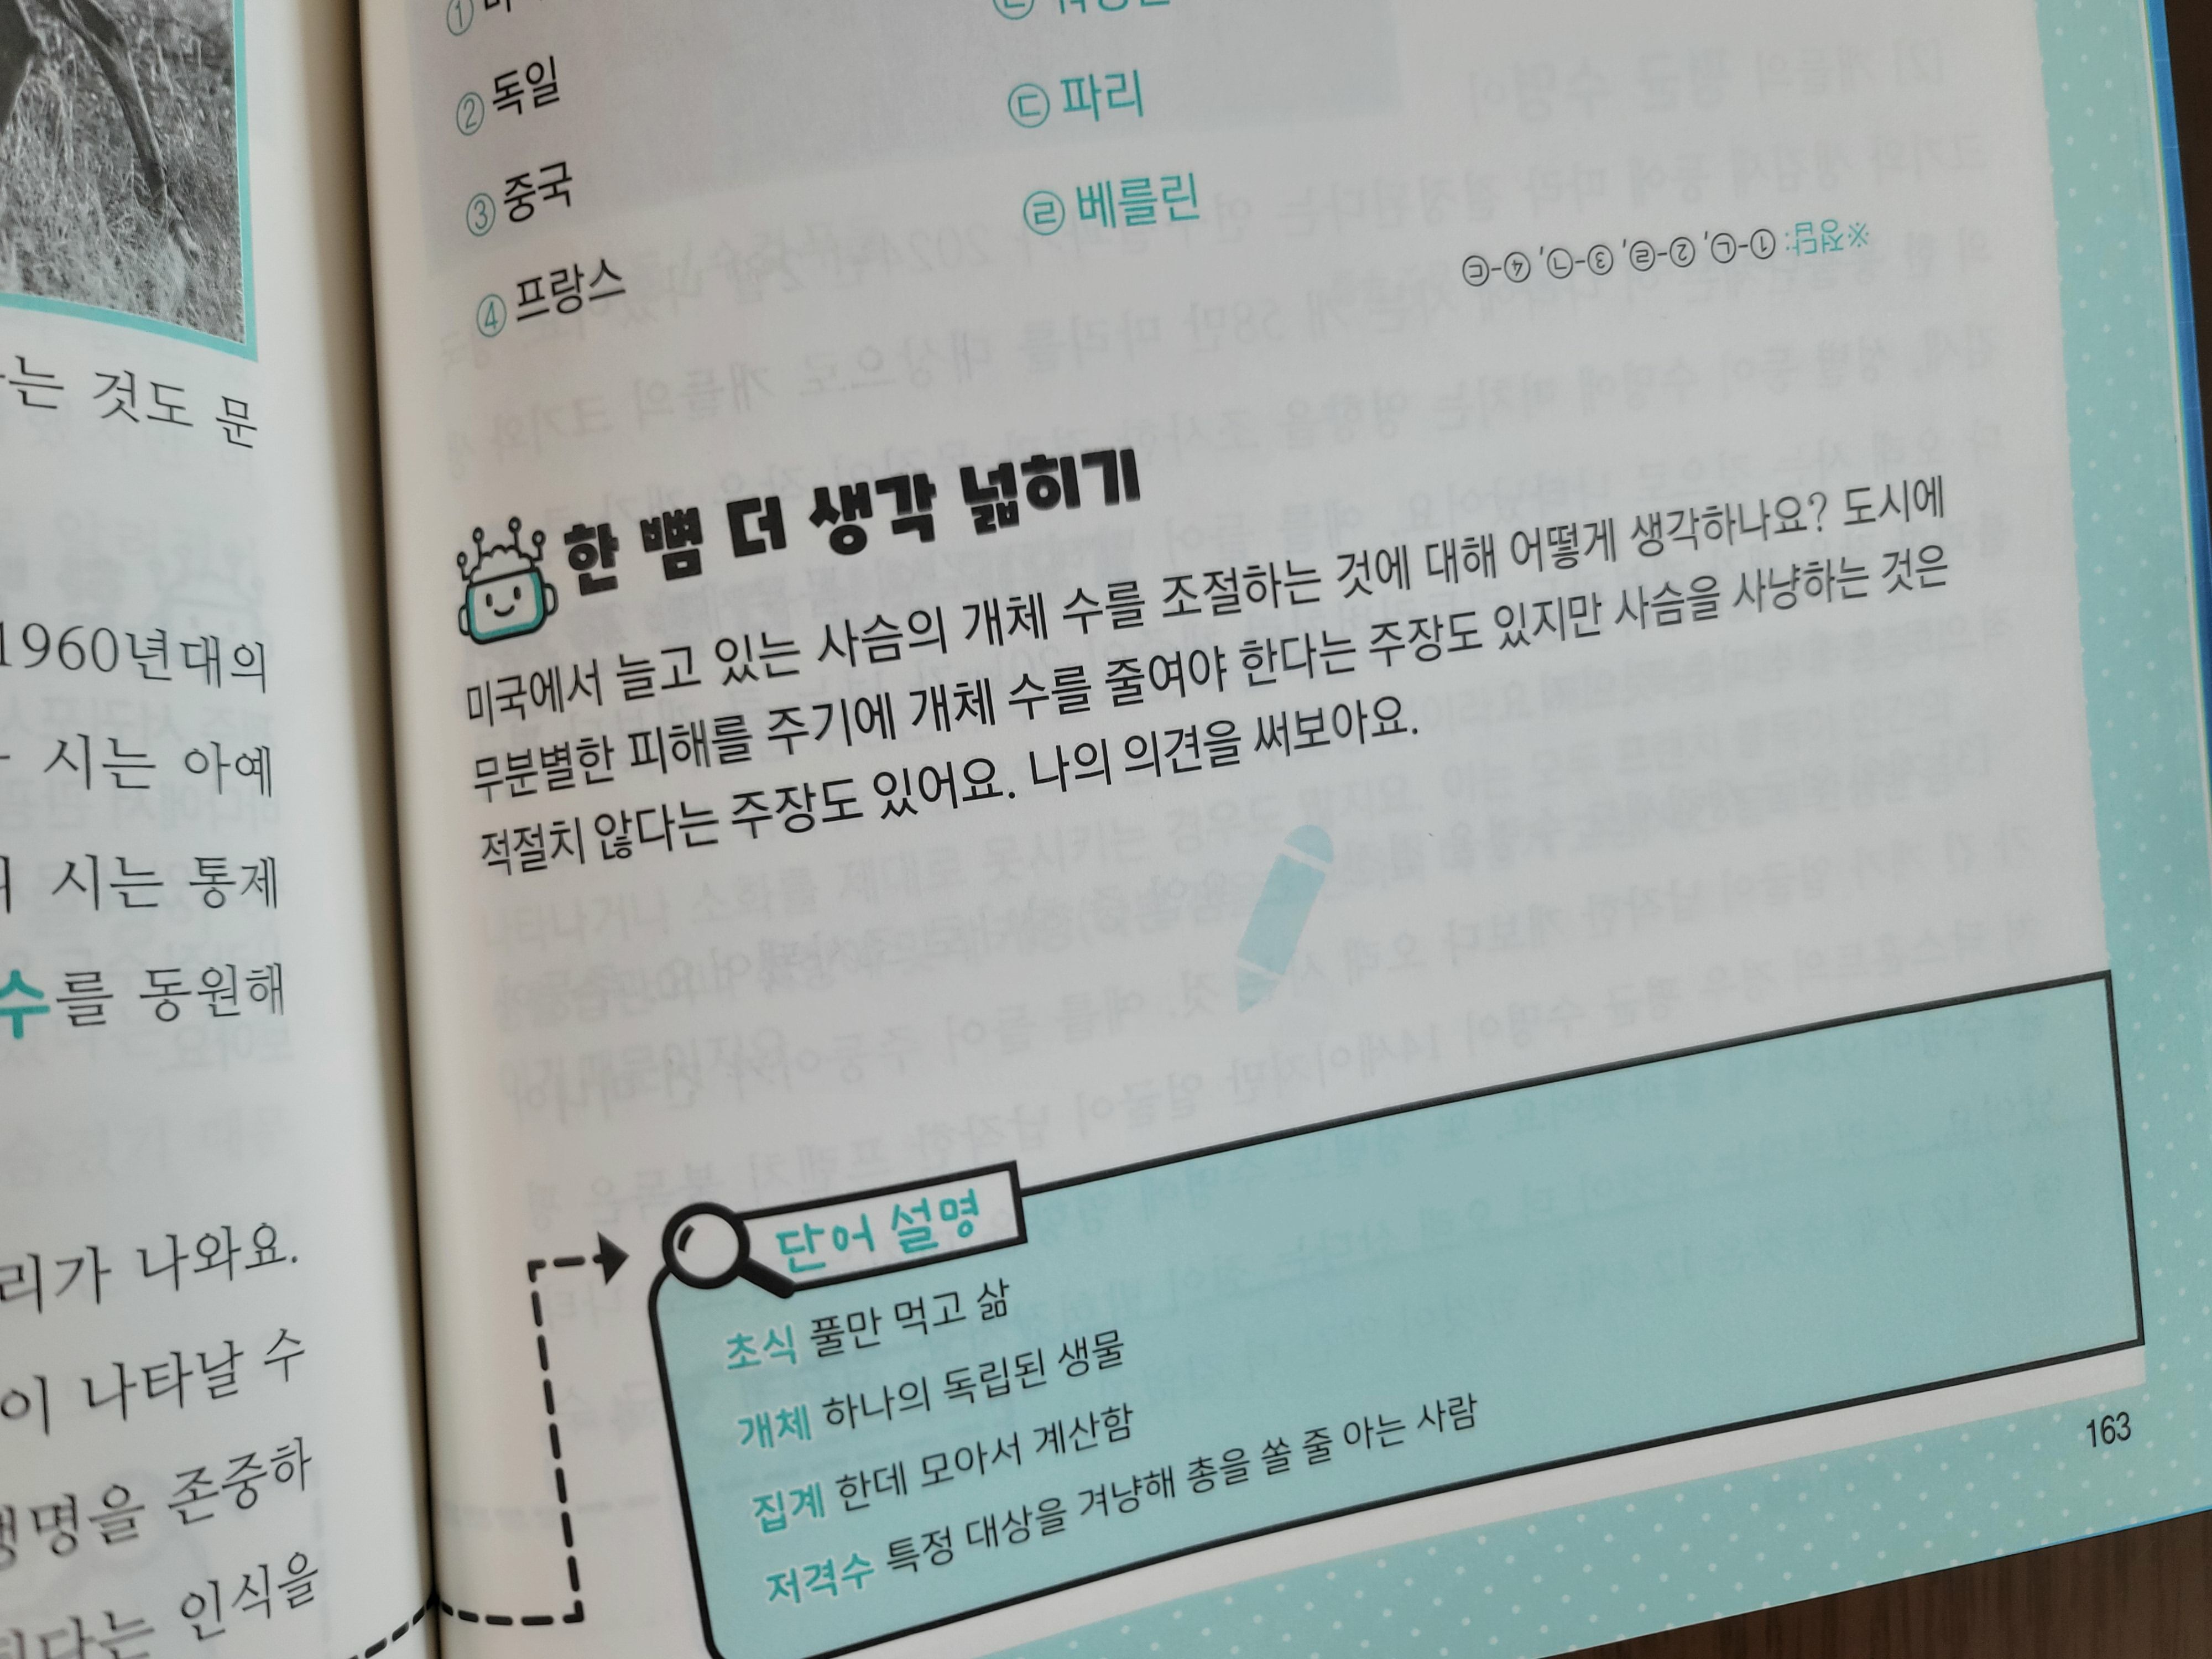 는 것도 문
1960년대의
시는 아예
시는 통제
수를 동원해
리가 나와요.
이 나타날 수
생명을 존중하
된다는 인식을
①
② 독일
③ 중국
④ 프랑스
㉢ 파리
㉣ 베를린
※정답: ①-㉡, ②-㉣, ③-㉠, ④-㉢
한 뼘 더 생각 넓히기
미국에서 늘고 있는 사슴의 개체 수를 조절하는 것에 대해 어떻게 생각하나요? 도시에
무분별한 피해를 주기에 개체 수를 줄여야 한다는 주장도 있지만 사슴을 사냥하는 것은
적절치 않다는 주장도 있어요. 나의 의견을 써보아요.
단어 설명
초식 풀만 먹고 삶
개체 하나의 독립된 생물
집계 한데 모아서 계산함
저격수 특정 대상을 겨냥해 총을 쏠 줄 아는 사람
163